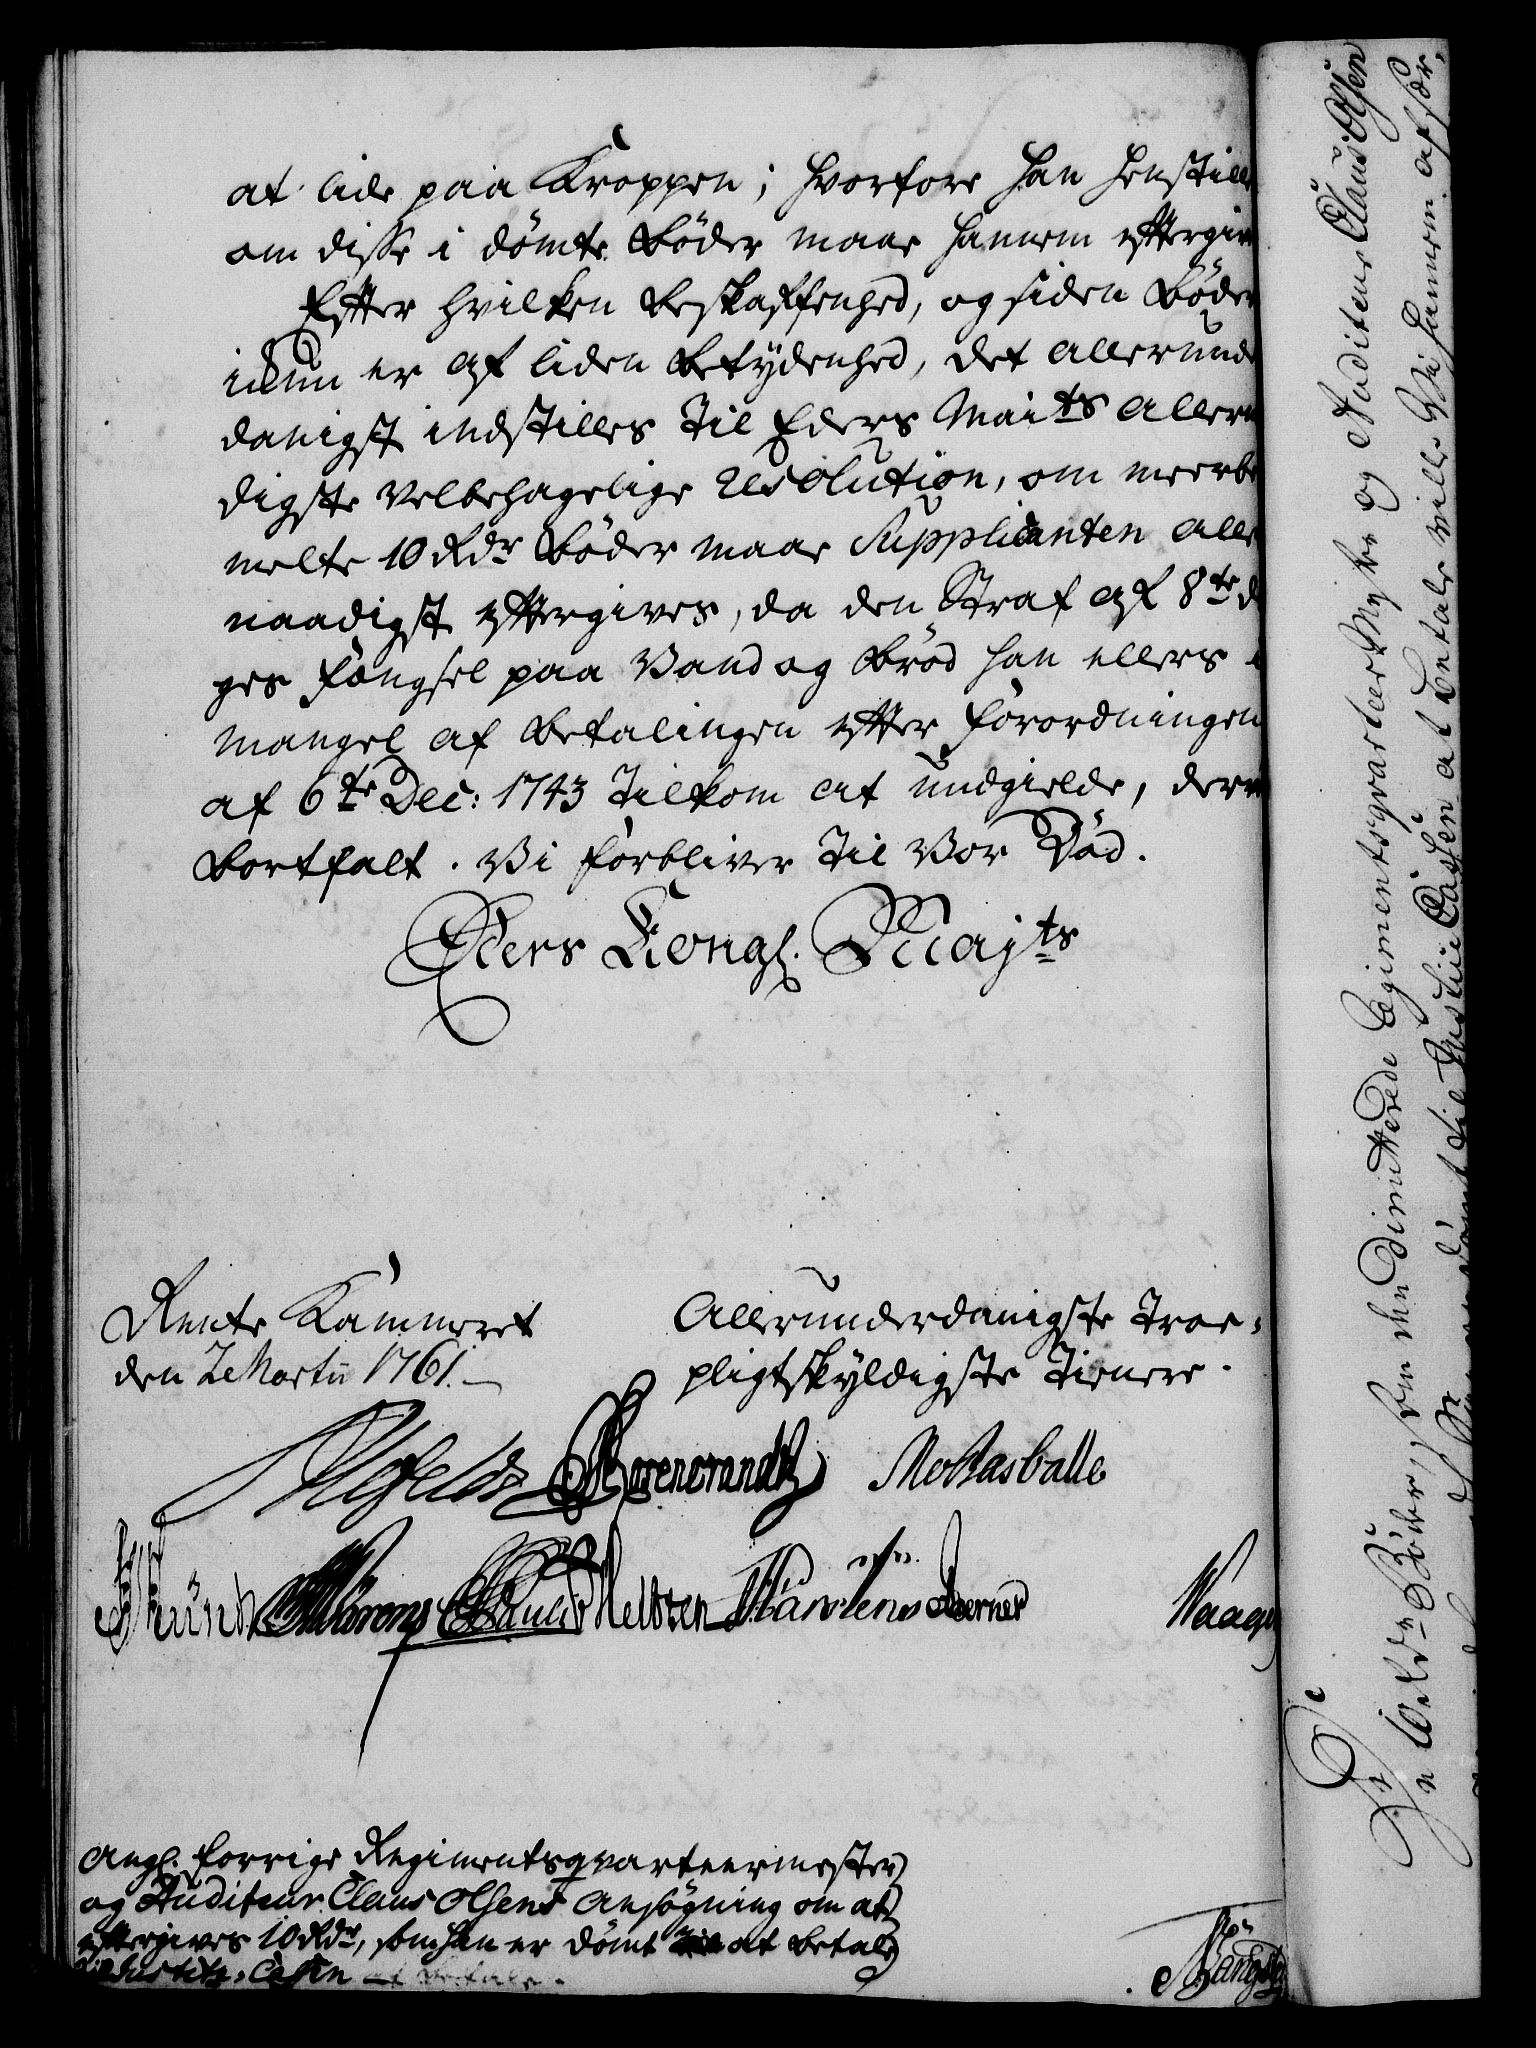 at lide paa Kroppen; hvorfore han henstille
om disse idömte Böder maae hannem eftergiv
Efter hvilken Beskaffenhed, og siden Böder
ikkun er af liden Betÿdenhed, det allerunde
danigst indstilles til Eders Maits allern
digste velbehagelige Resolution, om meerbe
melte 10 Rdr Böder maae Supplicanten alle
naadigst eftergives, da den Straf af 8te d
ges Fængsel paa Vand og Bröd han ellers i
mangel af Betalingen efter Forordningen
af 6te Dec: 1743 tilkom at undgielde, derv
bortfalt. Vi forbliver til Vor Död.
Eders Kongl. Majts
Rente Kammeret
den 2 Martii 1761.
Allerunderdanigste Troe-
pligtskÿldigste Tienere.
Ahlefeldt Holtasballe
Helbzen Berner Waage
Angl. forrige Regimentsqvarteermester
og Auditeur Claus Olsens Ansögning om at
eftergives 10 Rdr, som han er dömt at betale
til Justitz-Cassen
De 10 Rdr Böder, som den dimitterede Regimentsqvarteer Mester og Auditeur Claus Olsen
er dömt til Justiz Cassen at betale ville Vi hannem afsær,